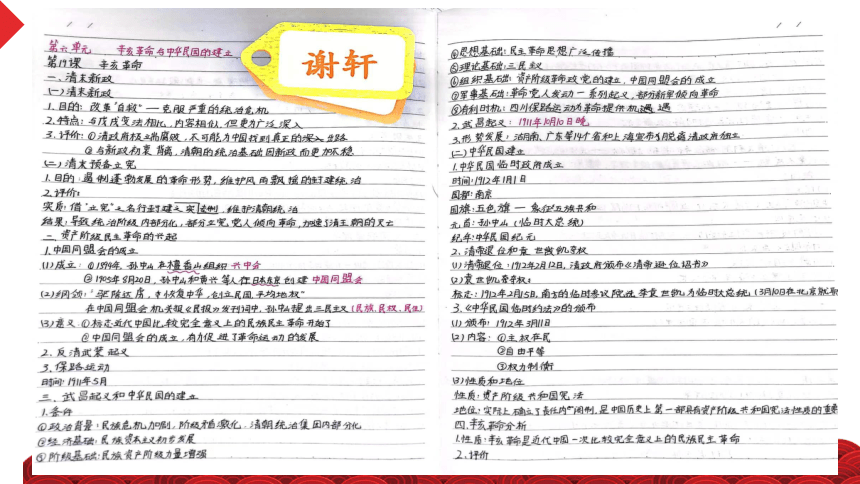 谢轩
第六单元 辛亥革命与中华民国的建立
第19课 辛亥革命
一、清末新政
(一)清末新政
1.目的：改革"自救"—克服严重的统治危机
2.特点：与戊戌变法相比，内容相似，但更为广泛深入
3.评价：①清政府极之腐败，不可能为中国找到真正的出路
②与新政初衷背离，清朝的统治基础因新政而更加不稳
(二)清末预备立宪
1.目的：遏制蓬勃发展的革命形势，维护风雨飘摇的封建统治
2.评价：
实质：借"立宪"之名行封建之实，维护清朝统治
结果：导致统治阶级内部分化，部分立宪党人倾向革命，加速了清王朝的灭亡
二、资产阶级民主革命的兴起
1.中国同盟会的成立
(1)成立：①1894年，孙中山在檀香山组织兴中会
②1905年8月20日，孙中山和黄兴等人在日本东京创建中国同盟会
(2)纲领："驱除鞑虏，恢复中华，创立民国，平均地权"
在中国同盟会机关报《民报》发刊词中，孙中山提出三民主义(民族、民权、民生)
(3)意义：①标志近代中国比较完全意义上的民族民主革命开始了
②中国同盟会的成立，有力促进了革命运动的发展
2.反清武装起义
3.保路运动
时间：1911年5月
三、武昌起义和中华民国的建立
1.条件
①政治背景：民族危机加剧，阶级矛盾激化，清朝统治集团内部分化
②经济基础：民族资本主义初步发展
③阶级基础：民族资产阶级力量增强
④思想基础：民主革命思想广泛传播
⑤理论基础：三民主义
⑥组织基础：资产阶级革命政党的建立，中国同盟会的成立
⑦军事基础：革命党人发动一系列起义，部分新军倾向革命
⑧有利时机：四川保路运动为革命提供机遇
2.武昌起义：1911年10月10日晚
3.形势发展：湖南、广东等14个省和上海宣布脱离清政府独立
(二)中华民国建立
1.中华民国临时政府成立
时间：1912年1月1日
国都：南京
国旗：五色旗—象征五族共和
元首：孙中山(临时大总统)
纪年：中华民国纪元
2、清帝退位和袁世凯窃权
(1)清帝退位：1912年2月12日，清政府颁布《清帝逊位诏书》
(2)袁世凯窃权：
标志：1912年2月15日，南京的临时参议院选举袁世凯为临时大总统(3月10日在北京就职
3.《中华民国临时约法》的颁布
(1)颁布：1912年3月11日
(2)内容：①主权在民
②自由平等
③权力制衡
(3)性质和地位
性质：资产阶级共和国宪法
地位：实际上确立了责任内阁制，是中国历史上第一部具有资产阶级共和国宪法性质的重要
四、辛亥革命分析
1.性质：辛亥革命是近代中国一次比较完全意义上的民族民主革命
2.评价